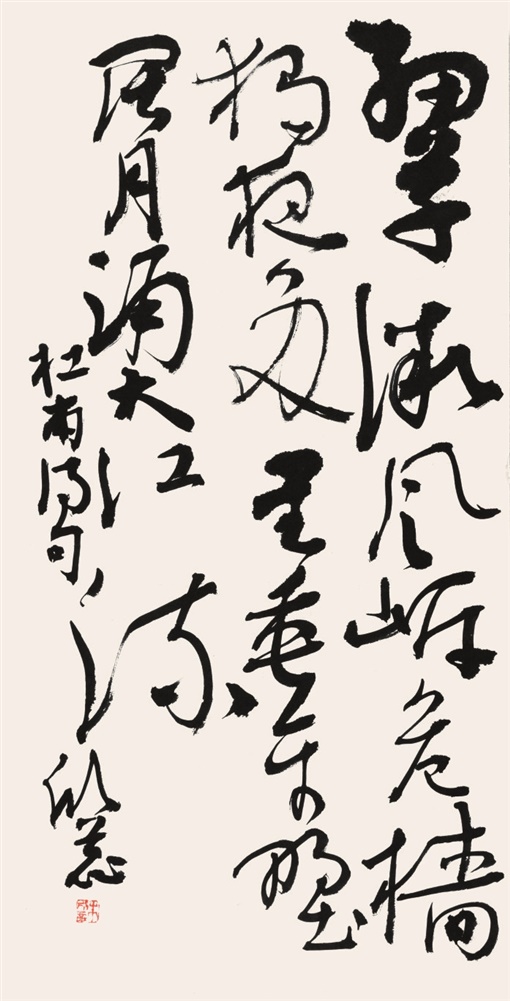 細草微风岸危檣
獨夜舟星垂平野
阔月涌大江流
杜甫诗句